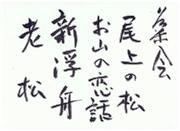 茶会
尾上の松
お山の恋話
新浮舟
老松